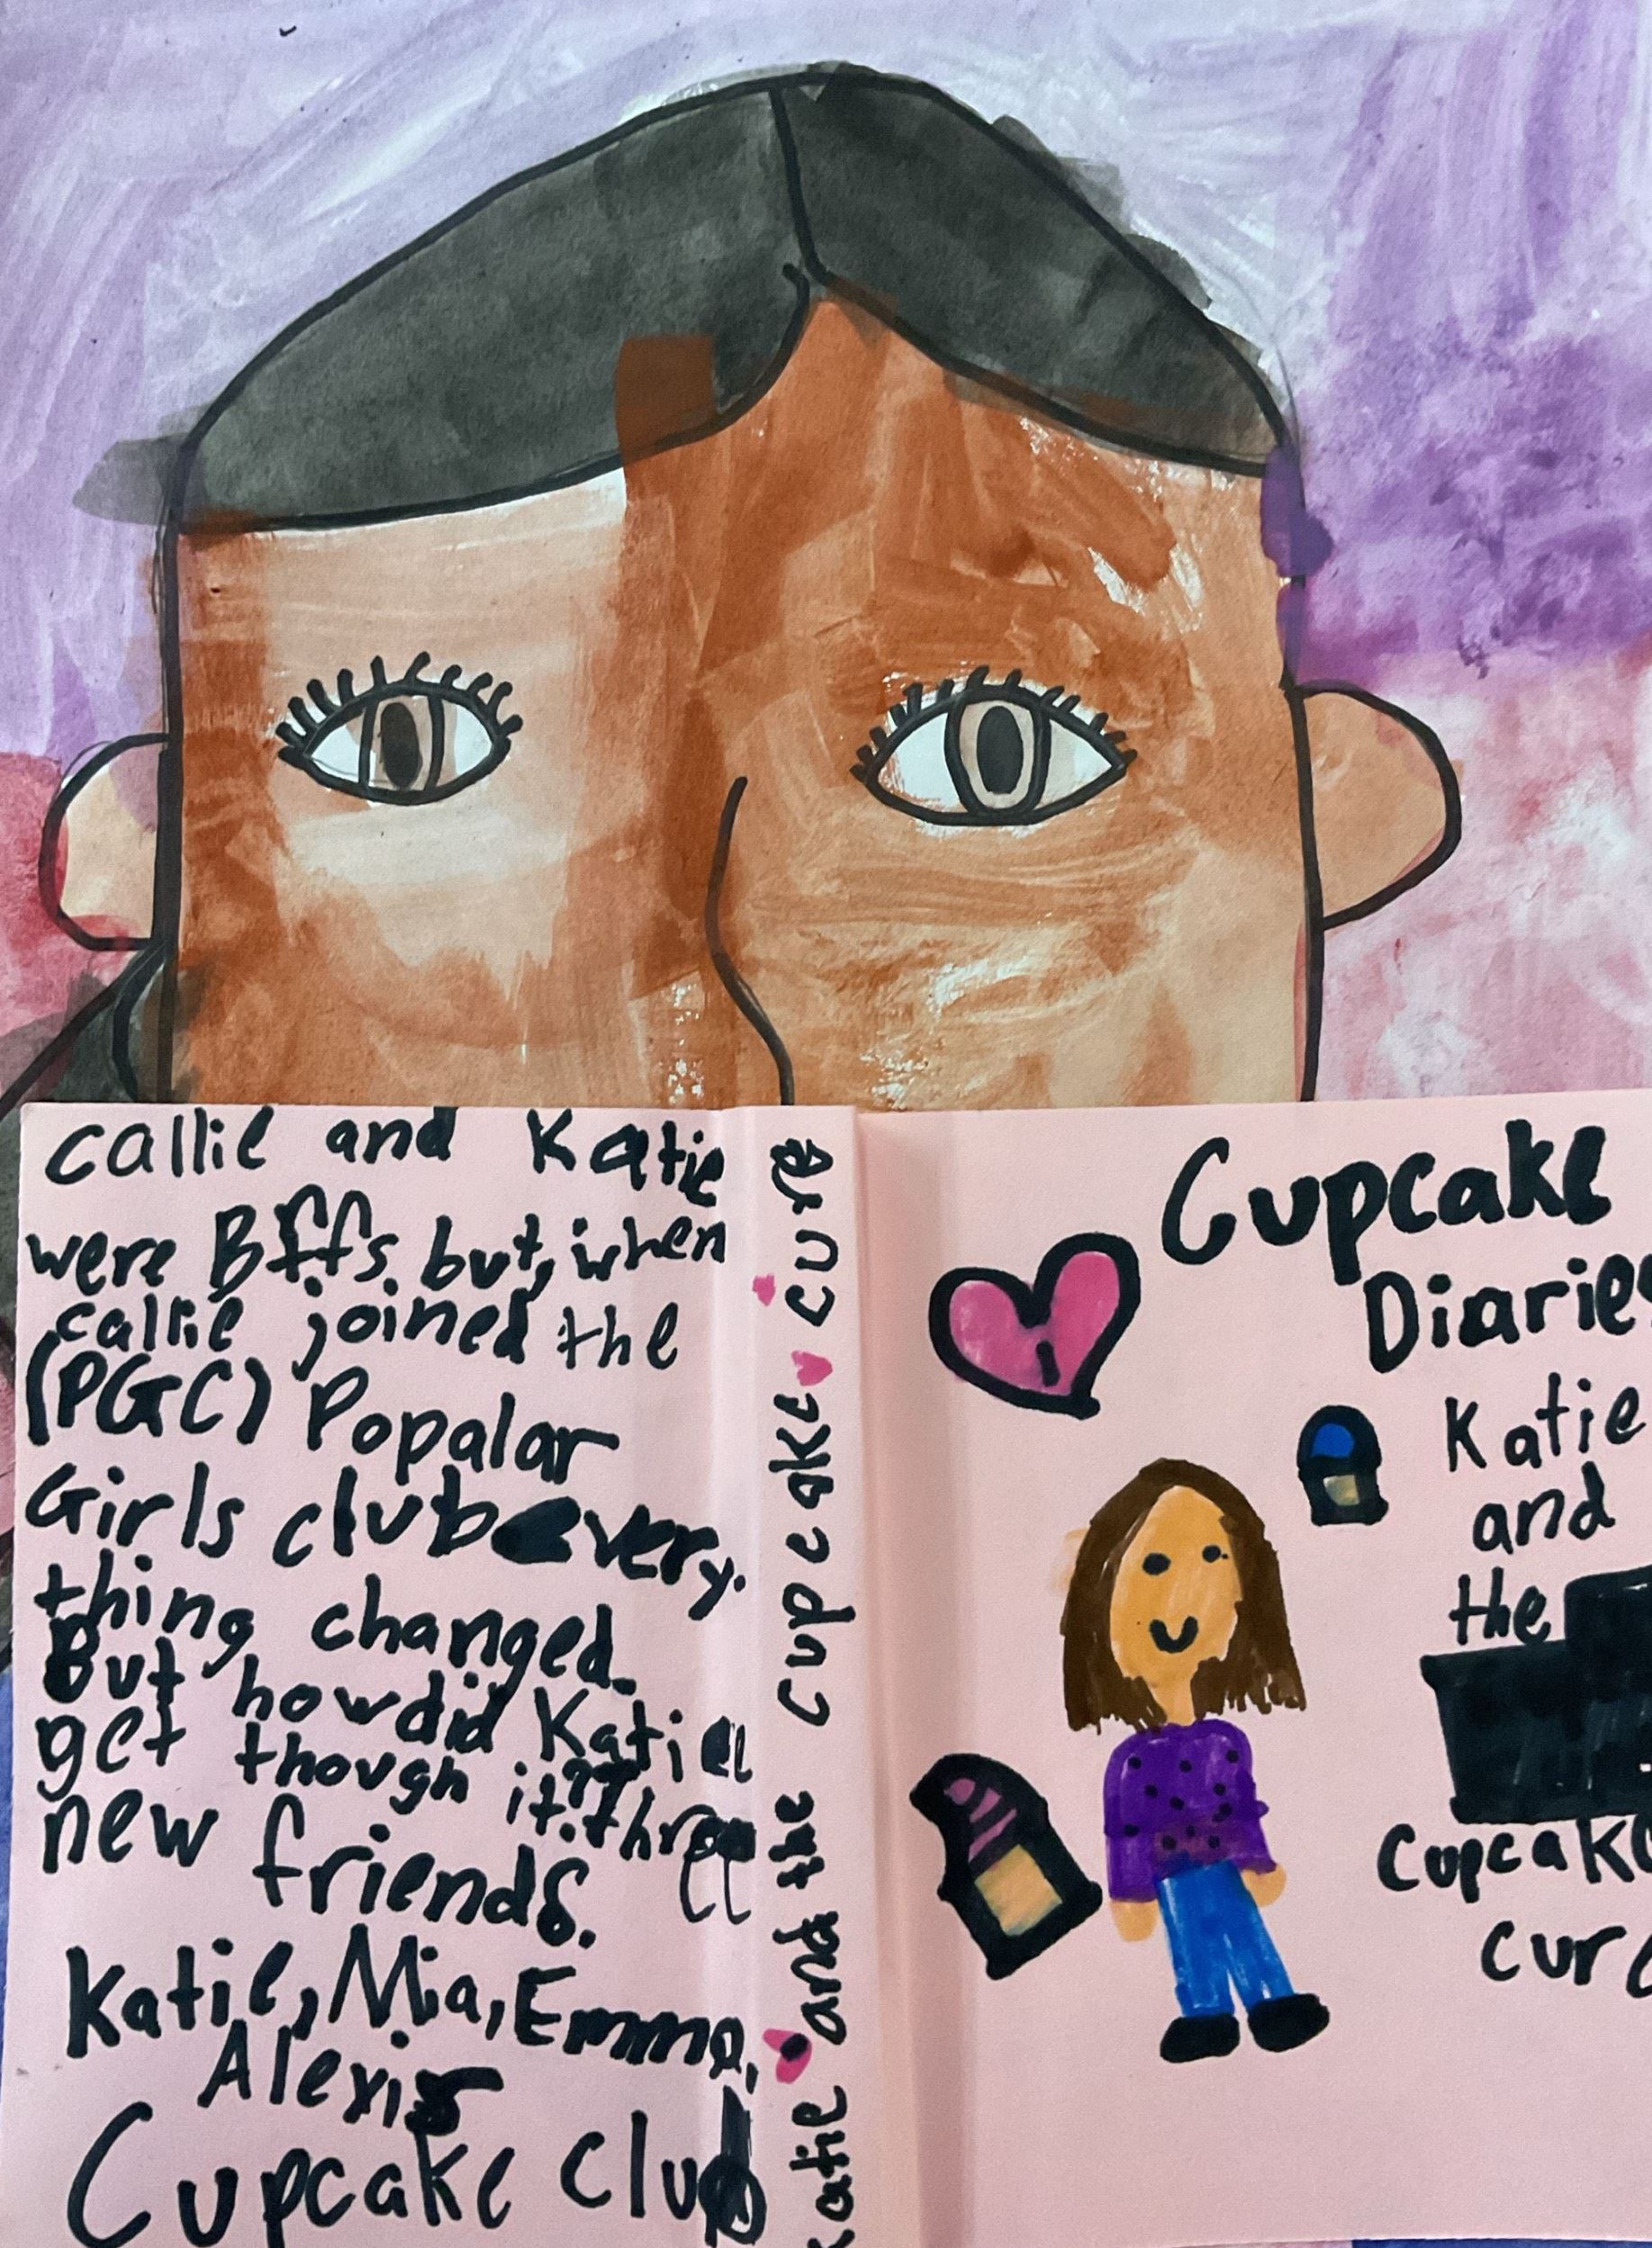 Callie and Katie
were Bffs. but, when
callie joined the
(PGC) Popalar
Girls club every.
thing changed.
But how did Katie
get though it?? three
new friends.
Katie, Mia, Emma,
Alexis
Cupcake Club
Katie and the cupcake cure
Cupcake
Diaries
Katie
and
the
Cupcake
cure